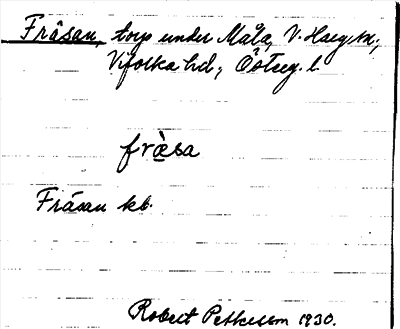 Fräsan, torp under Måla, V. Harg sn;
Vifolka hd; Östreg. l.
fræ̀sa
Fräsan kb.
Robert Pettersson 1930.